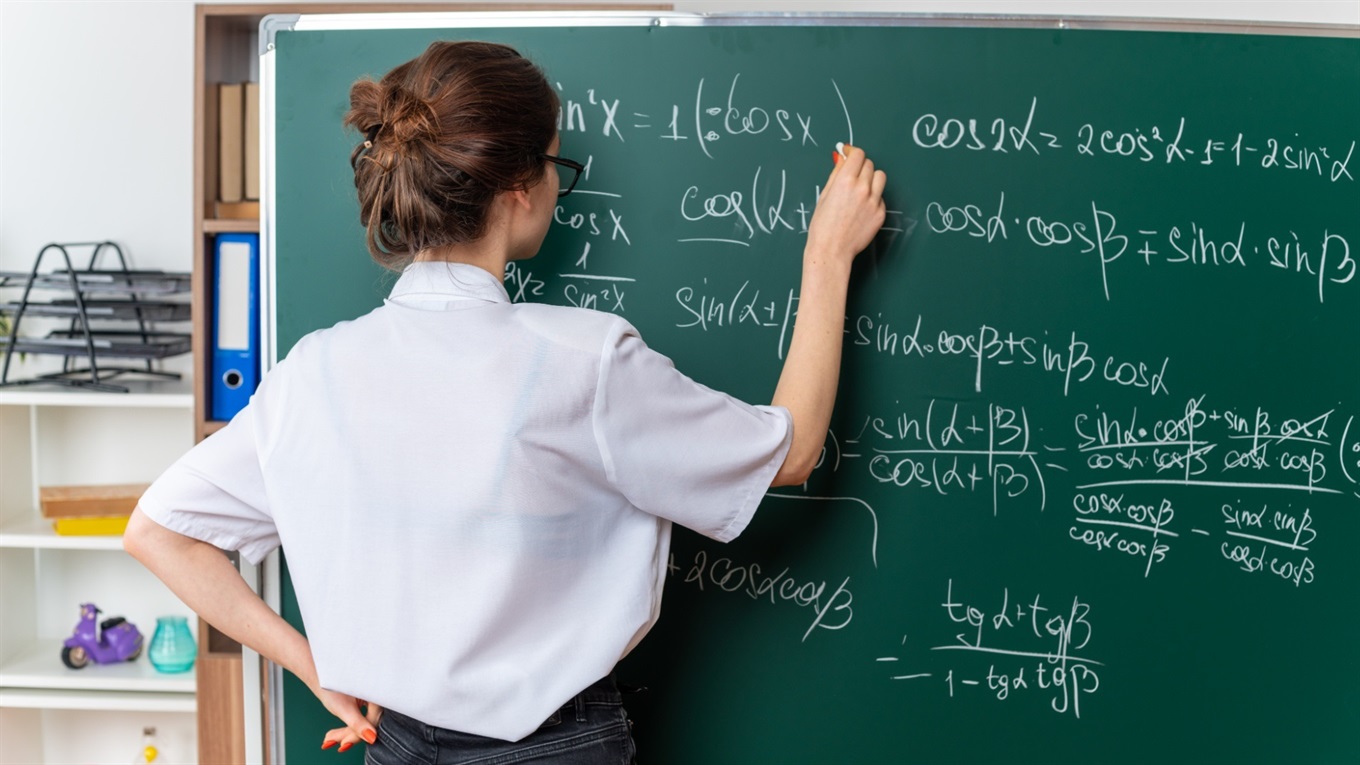 in²x = 1 (:cosx) cos2α = 2cos²α-1=1-2sin²α
1/cosx cos(α± = cosα·cosβ∓sinα·sinβ
2x= 1/sin²x sin(α±β = sinα·cosβ±sinβ cosα
) = sin(α+β)/cos(α+β) = (sinα·cosβ/cosα·cosβ + sinβ·cosα/cosα·cosβ)/(cosα·cosβ/cosα·cosβ - sinα·sinβ/cosα·cosβ) (
+ 2cosαcosβ
= tgα+tgβ/1-tgα tgβ